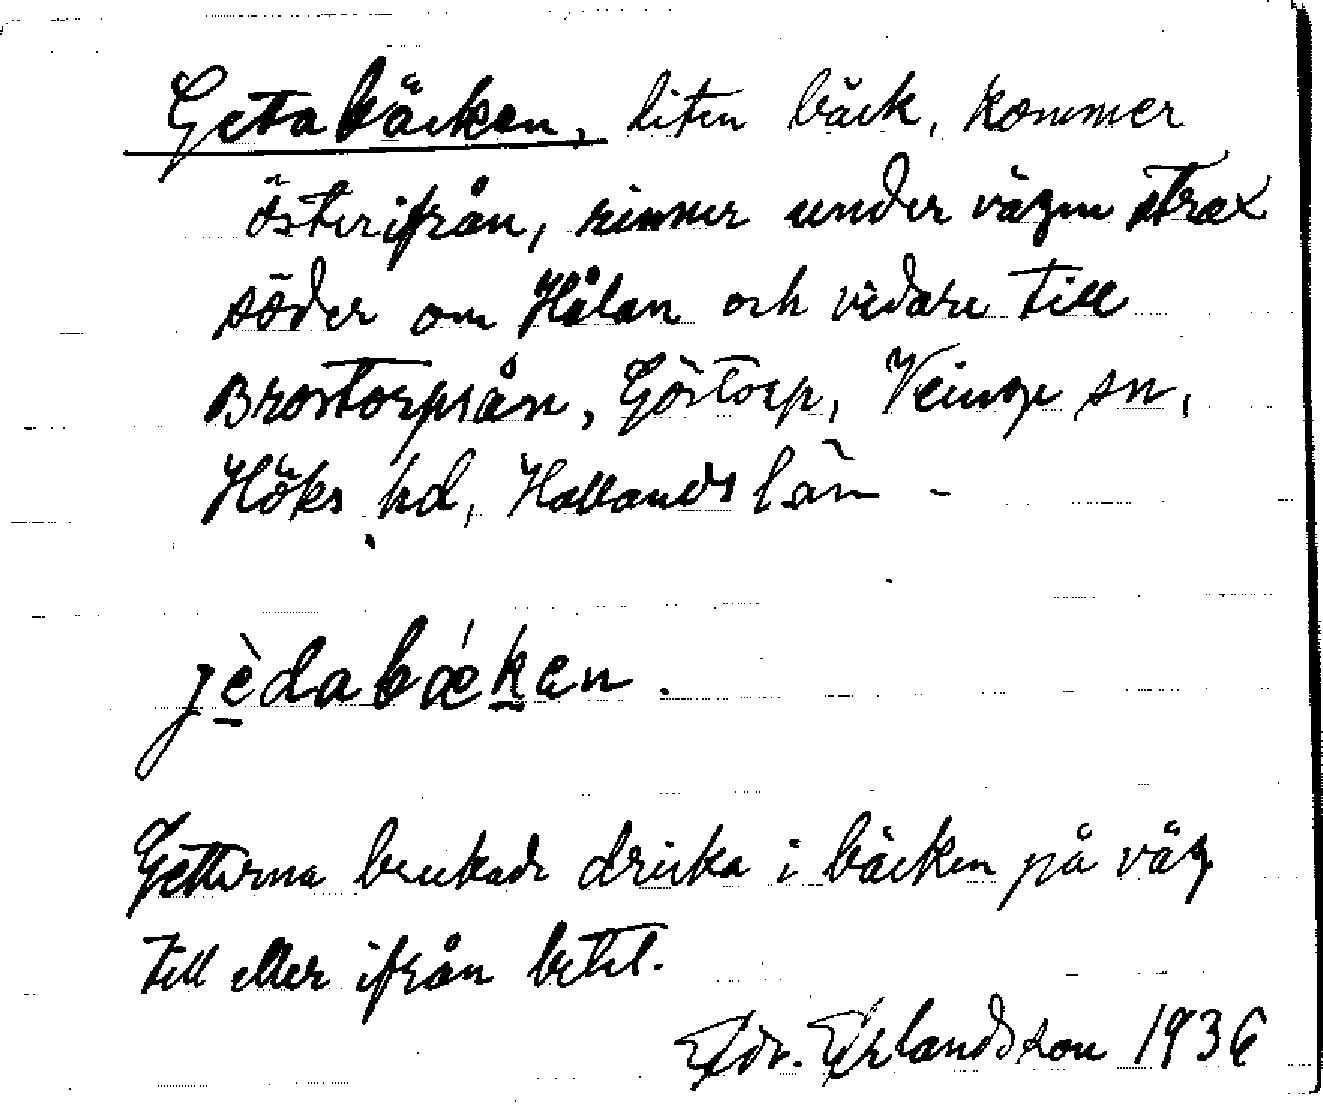 Getabäcken, liten bäck, kommer
österifrån, rinner under vägen strax
söder om Hålan och vidare till
Brostorpsån, Göstorp, Veinge sn,
Höks hd, Hallands län -
jèdabǽken.
Getterna brukade dricka i bäcken på väg
till eller ifrån betet.
Edv. Erlandsson 1936